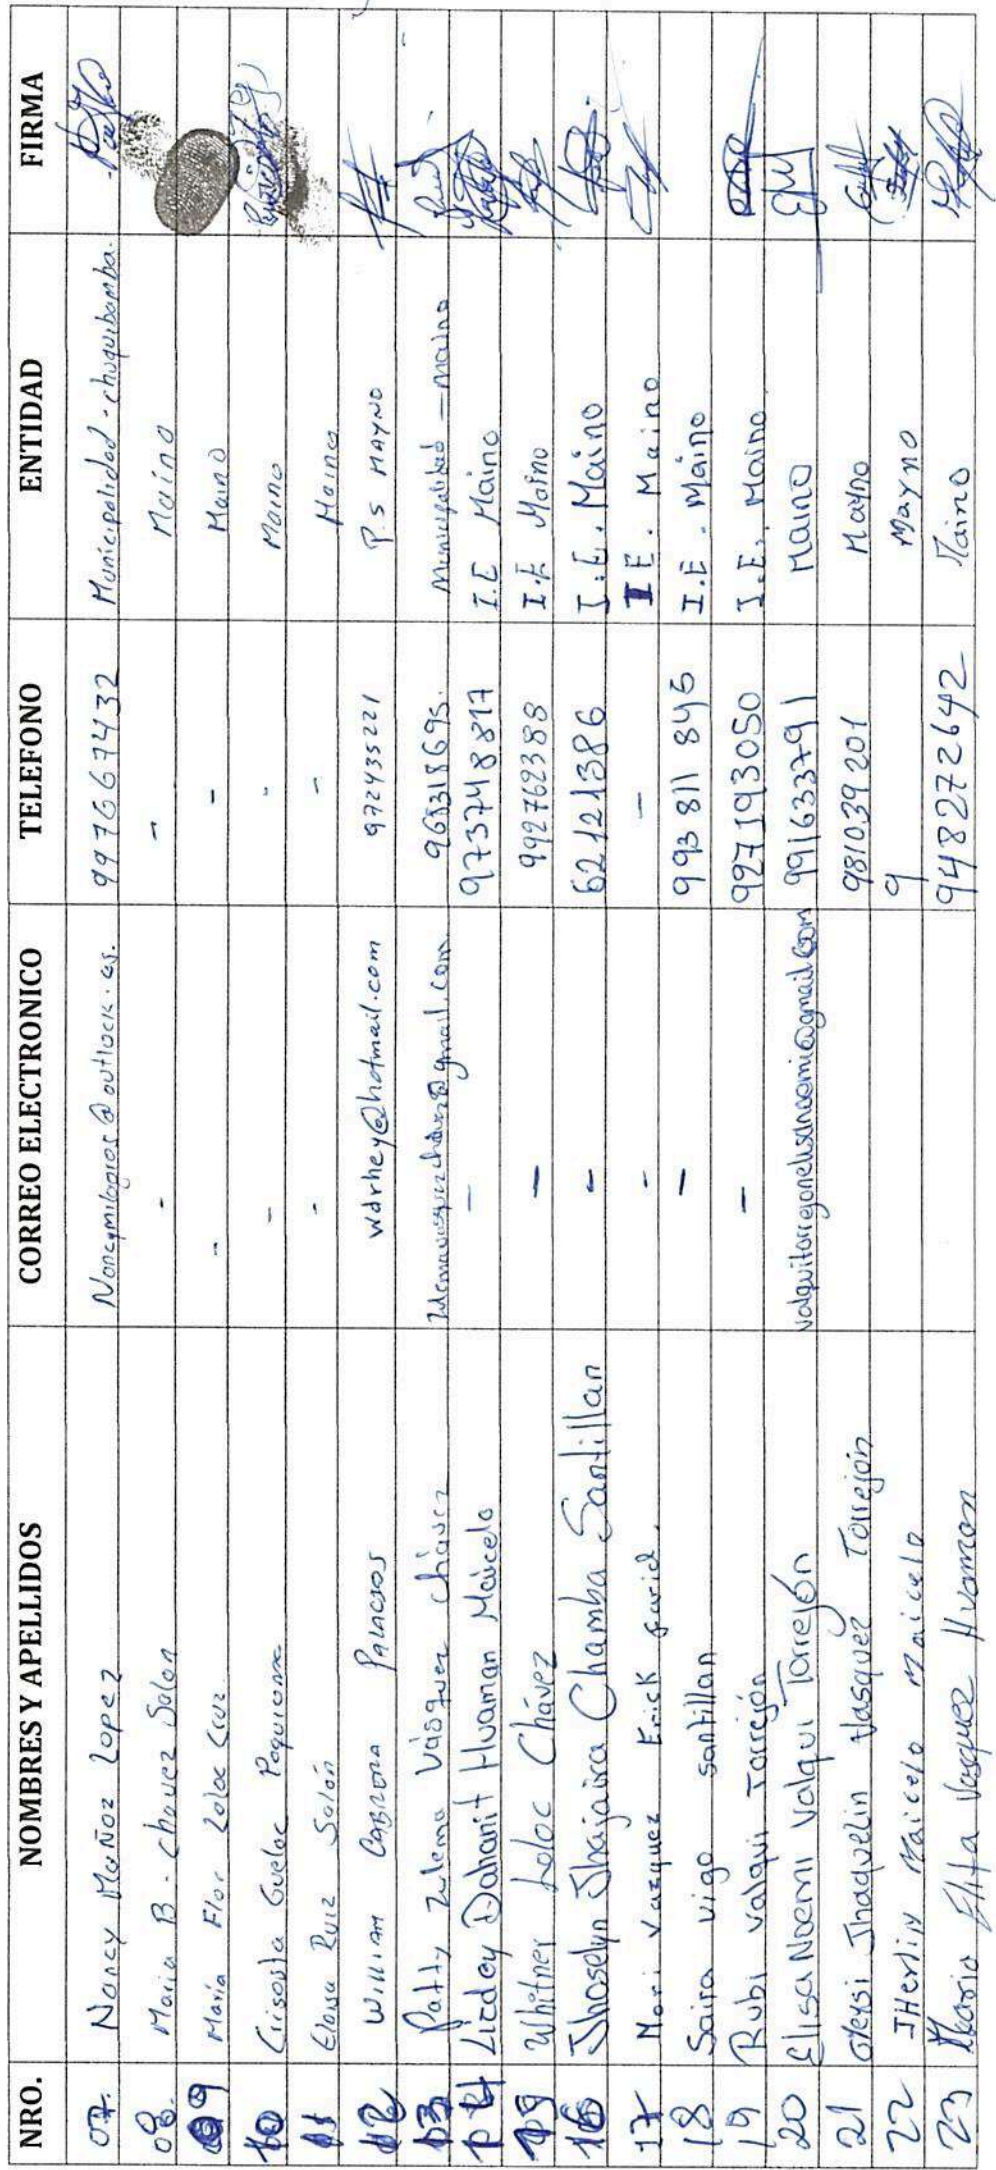 NRO. NOMBRES Y APELLIDOS CORREO ELECTRONICO TELEFONO ENTIDAD FIRMA
07. Nancy Muñoz Lopez Nancymilagros@outlock.es. 997667432 Municipalidad - chuquibamba.
08. Maria B. chavez Salon - - Maino
09 María Flor Loloc Cruz - - Maino
10 Crisosta Gueloc Poquioma - - Maino
11 Elousa Ruiz Salón - - Maino
12 WILLIAM CABRERA PALACIOS wdrhey@hotmail.com 972435221 P.S MAYNO
13 Patty Zulema Vásquez chávez 968318695. Municipalidad - maino
14 Lizdey Dahanit Huaman Maicelo - 973748817 I.E Maino
15 Whitner Loloc Chávez - 992762388 I.E Maino
16 Jhoselyn Jhajaira Chamba Santillan - 62121386 I.E. Maino
17 Mori Vazquez Erick - - I E. Maino
18 Saira vigo santillan - 993 811 845 I.E. Maino
19 Rubi valqui Torrejón - 927193050 I.E. Maino
20 Elisa Noemi Valqui Torrejón valquitorrejonelisanoemi@gmail.com 991633791 Maino
21 Jhaquelin Vasquez Torrejón 981039201 Mayno
22 JHerliN Maicelo Maicelo 9 Mayno
23 Elita Vasquez Huaman 948272642 Maino